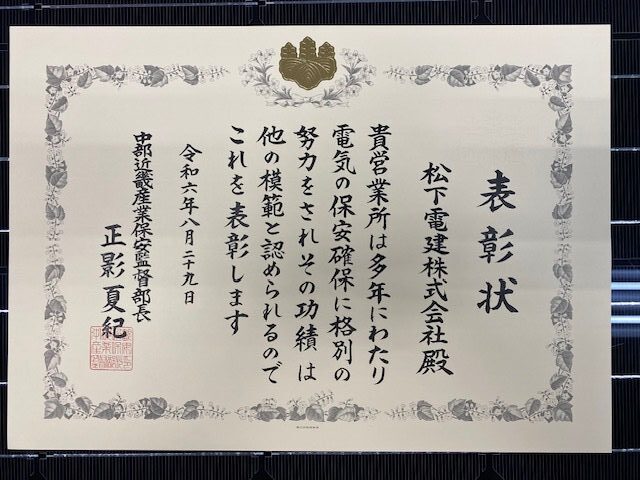 表彰状
松下電建株式会社殿
貴営業所は多年にわたり
電気の保安確保に格別の
努力をされその功績は
他の模範と認められるので
これを表彰します
令和六年八月二十九日
中部近畿産業保安監督部長
正影夏紀